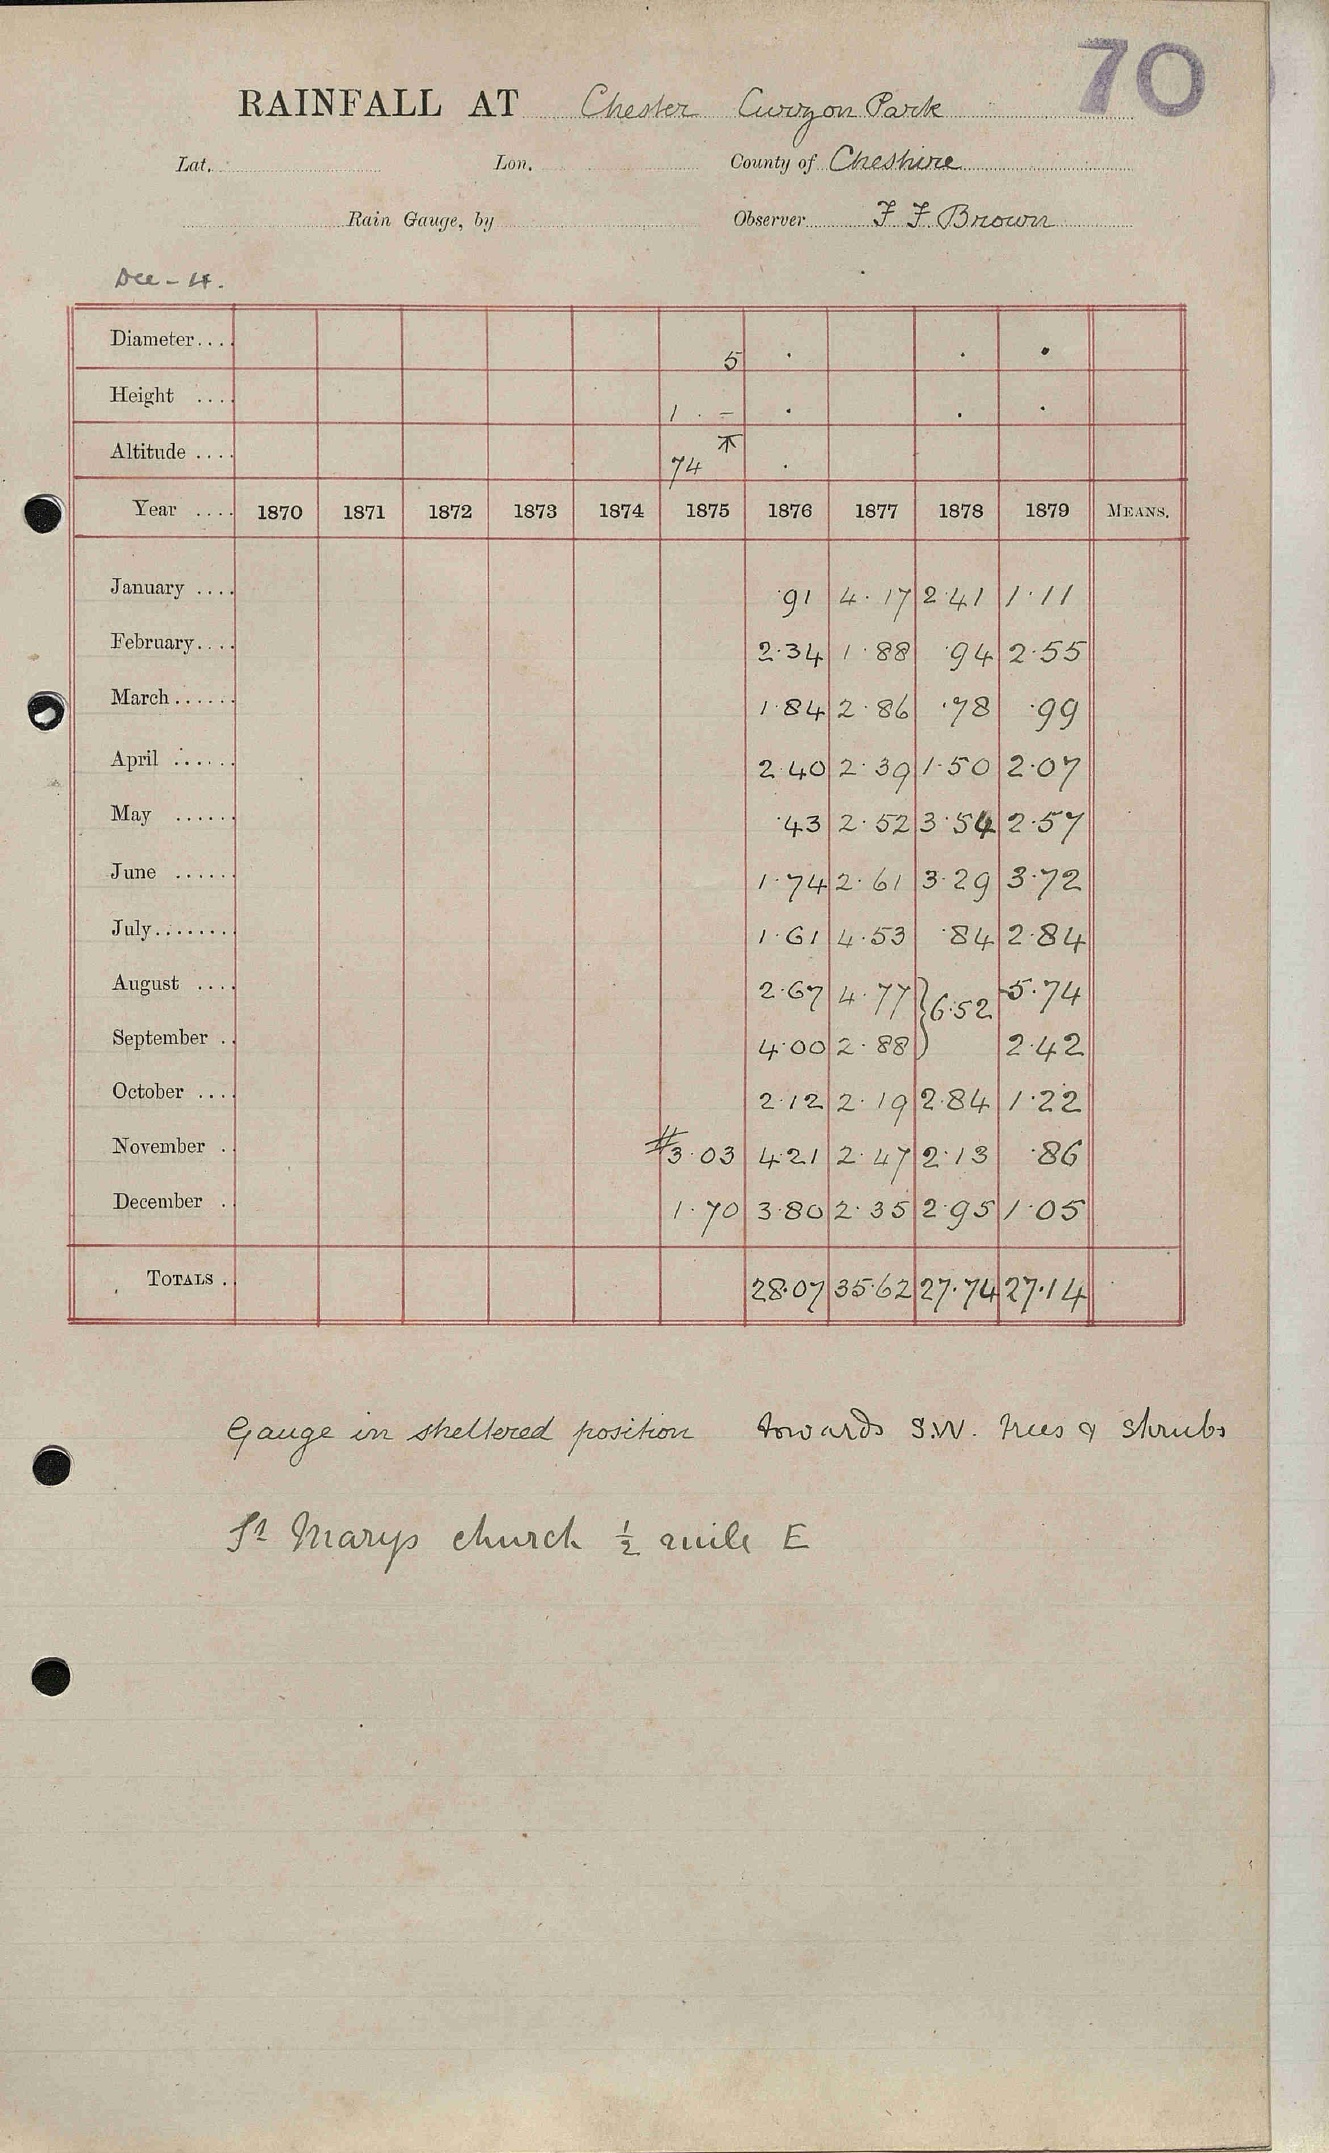 70
RAINFALL AT Chester Curzon Park
Lat. Lon. County of Cheshire
Rain Gauge, by Observer F F. Brown
Dec - 4.
Diameter.... 5 . . .
Height .... 1 . – . . .
Altitude .... 74 .
Year .... 1870 1871 1872 1873 1874 1875 1876 1877 1878 1879 MEANS.
January .... ·91 4·17 2·41 1·11
February.... 2·34 1·88 ·94 2·55
March...... 1·84 2·86 ·78 ·99
April ...... 2·40 2·39 1·50 2·07
May ...... ·43 2·52 3·54 2·57
June ...... 1·74 2·61 3·29 3·72
July....... 1·61 4·53 ·84 2·84
August .... 2·67 4·77 } 6·52 5·74
September .. 4·00 2·88 2·42
October .... 2·12 2·19 2·84 1·22
November . #3·03 4·21 2·47 2·13 ·86
December . 1·70 3·80 2·35 2·95 1·05
TOTALS . 28·07 35·62 27·74 27·14
Gauge in sheltered position towards S.W. Trees & Shrubs
St Marys church ½ mile E